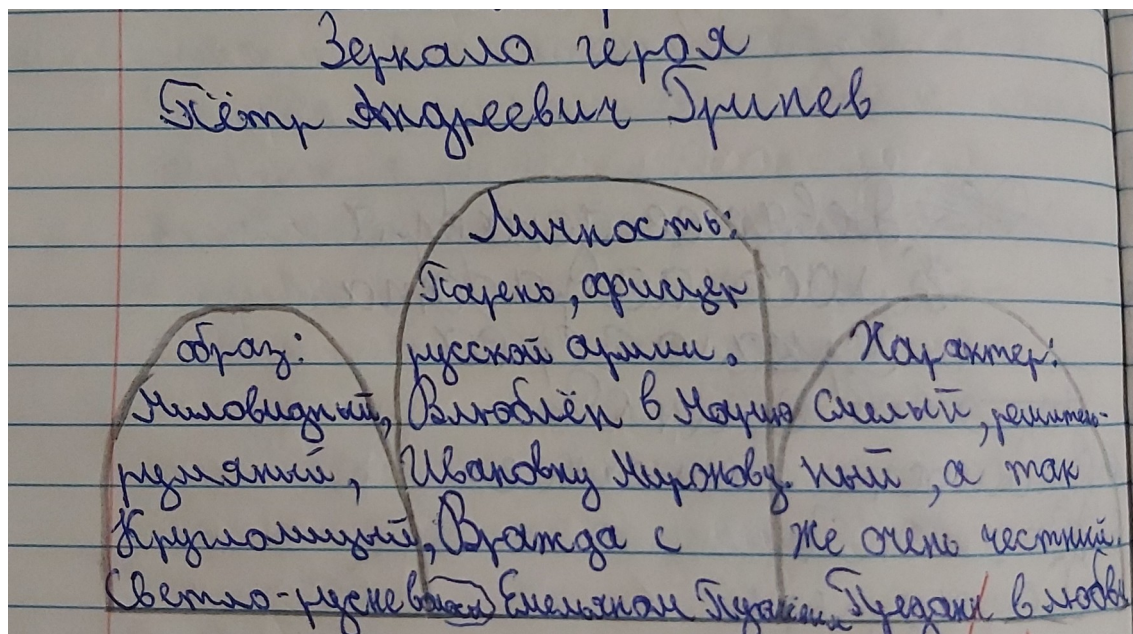 Зеркало героя
Пётр Андреевич Гринев
образ:
Миловидный,
румяный,
Круглолицый,
Светло-русые
Личность:
Парень, офицер
русской армии.
Влюблён в Машу
Ивановну Миронову.
Вражда с
Емельяном
Характер:
Смелый, решитель-
ный, а так
же очень честний.
Предан в любви